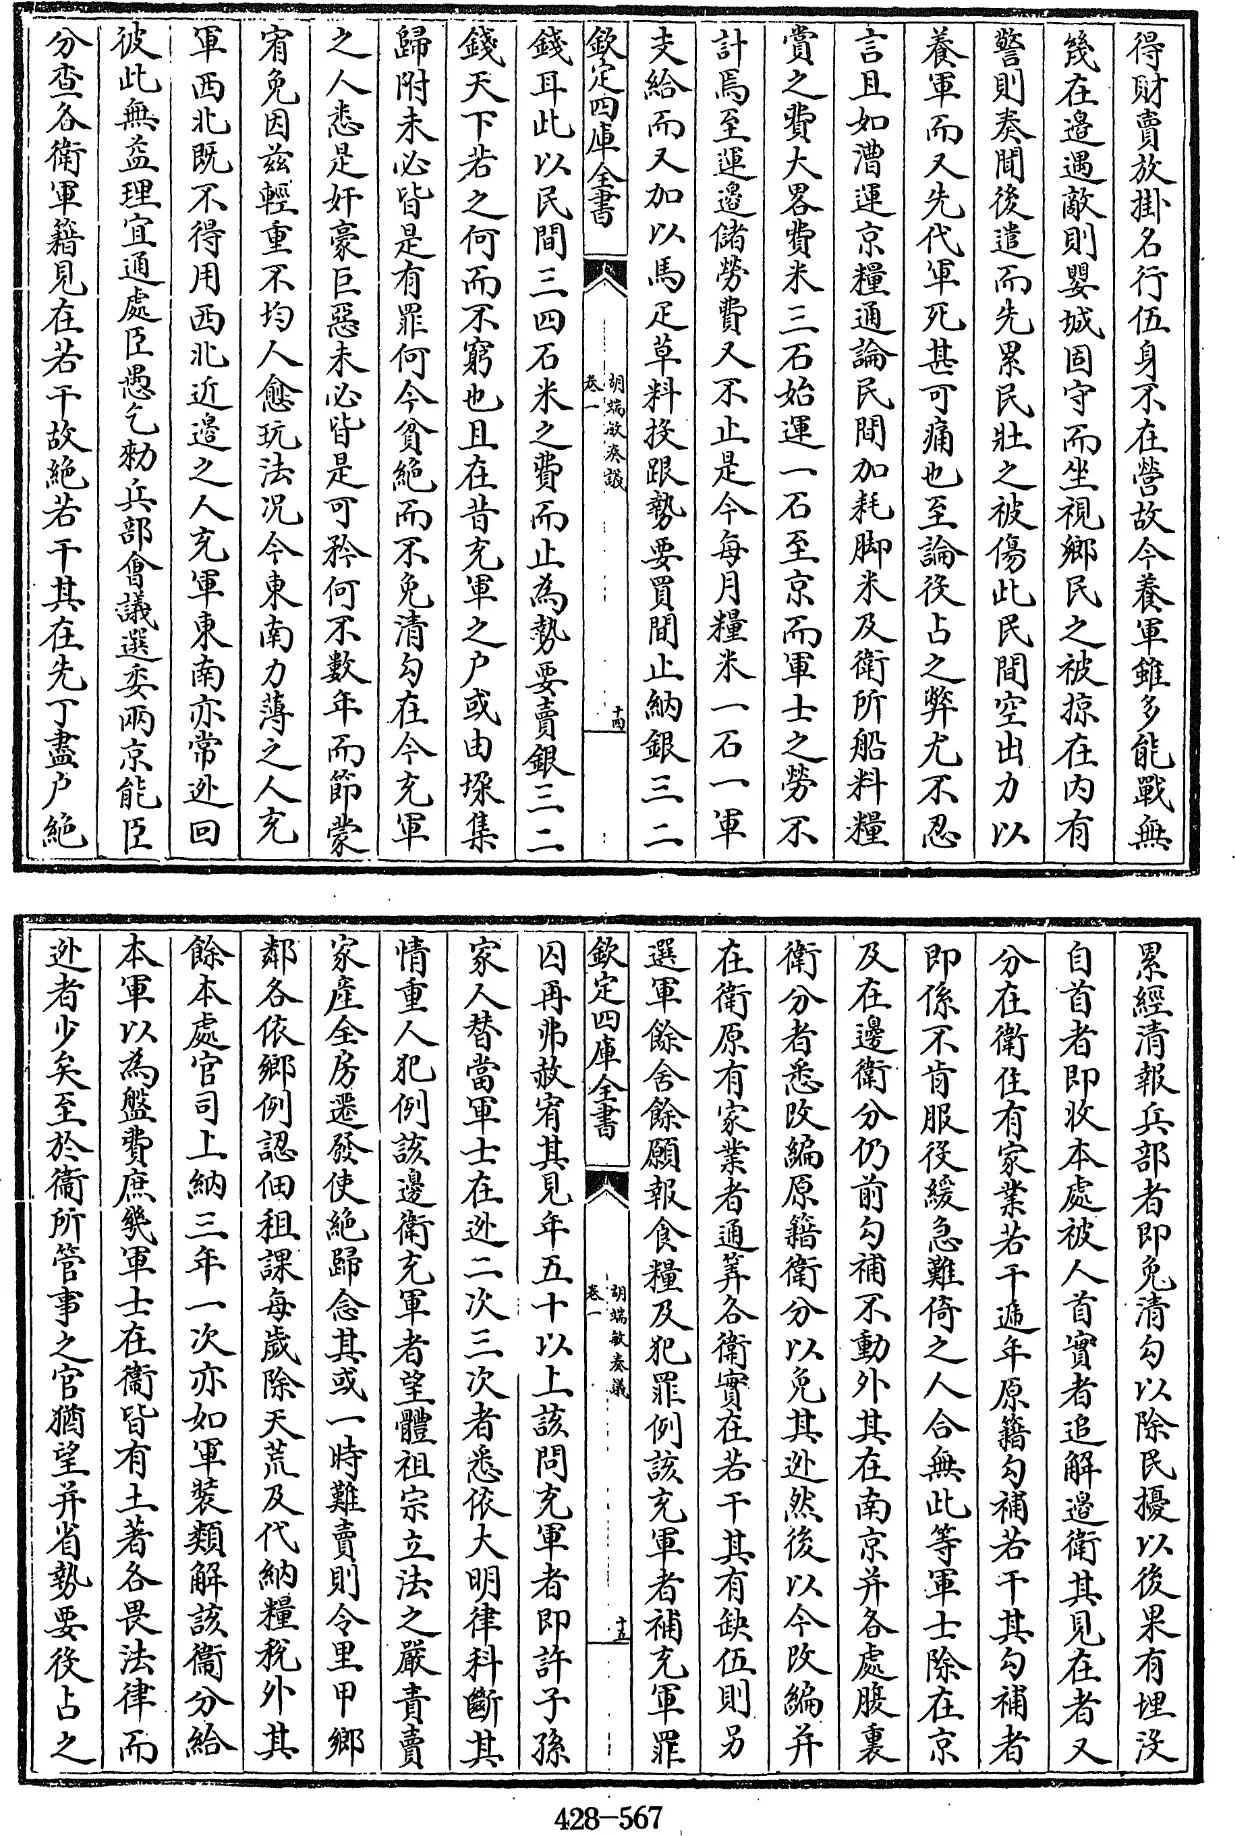 得財賣放掛名行伍身不在營故今養軍雖多能戰無
幾在邊遇敵則嬰城固守而坐視鄉民之被掠在内有
警則奏聞後遣而先累民壯之被傷此民間空出力以
養軍而又先代軍死甚可痛也至論役占之弊尤不忍
言且如漕運京糧通論民間加耗脚米及衛所船料糧
賞之費大畧費米三石始運一石至京而軍士之勞不
計焉至運邊儲勞費又不止是今每月糧米一石一軍
支給而又加以馬疋草料投跟勢要買間止納銀三二
欽定四庫全書
胡端敏奏議
卷一
十四
錢耳此以民間三四石米之費而止為勢要賣銀三二
錢天下若之何而不窮也且在昔充軍之户或由垜集
歸附未必皆是有罪何今貧絶而不免清勾在今充軍
之人悉是奸豪巨惡未必皆是可矜何不數年而節蒙
宥免因兹輕重不均人愈玩法况今東南力薄之人充
軍西北既不得用西北近邊之人充軍東南亦常逃回
彼此無益理宜通處臣愚乞勑兵部會議選委兩京能臣
分查各衛軍籍見在若干故絶若干其在先丁盡户絶
累經清報兵部者即免清勾以除民擾以後果有埋没
自首者即收本處被人首實者追解邊衛其見在者又
分在衛住有家業若干逓年原籍勾補若干其勾補者
即係不肯服役緩急難倚之人合無此等軍士除在京
及在邊衛分仍前勾補不動外其在南京并各處腹裏
衛分者悉改編原籍衛分以免其逃然後以今改編并
在衛原有家業者通筭各衛實在若干其有缺伍則另
選軍餘舍餘願報食糧及犯罪例該充軍者補充軍罪
欽定四庫全書
胡端敏奏議
卷一
十五
囚再弗赦宥其見年五十以上該問充軍者即許子孫
家人替當軍士在逃二次三次者悉依大明律科斷其
情重人犯例該邊衛充軍者望體祖宗立法之嚴責賣
家産全房遷發使絶歸念其或一時難賣則令里甲鄉
鄰各依鄉例認佃租課每歲除天荒及代納糧税外其
餘本處官司上納三年一次亦如軍裝類解該衛分給
本軍以為盤費庶幾軍士在衛皆有土著各畏法律而
逃者少矣至於衛所管事之官猶望并省勢要役占之
428-567